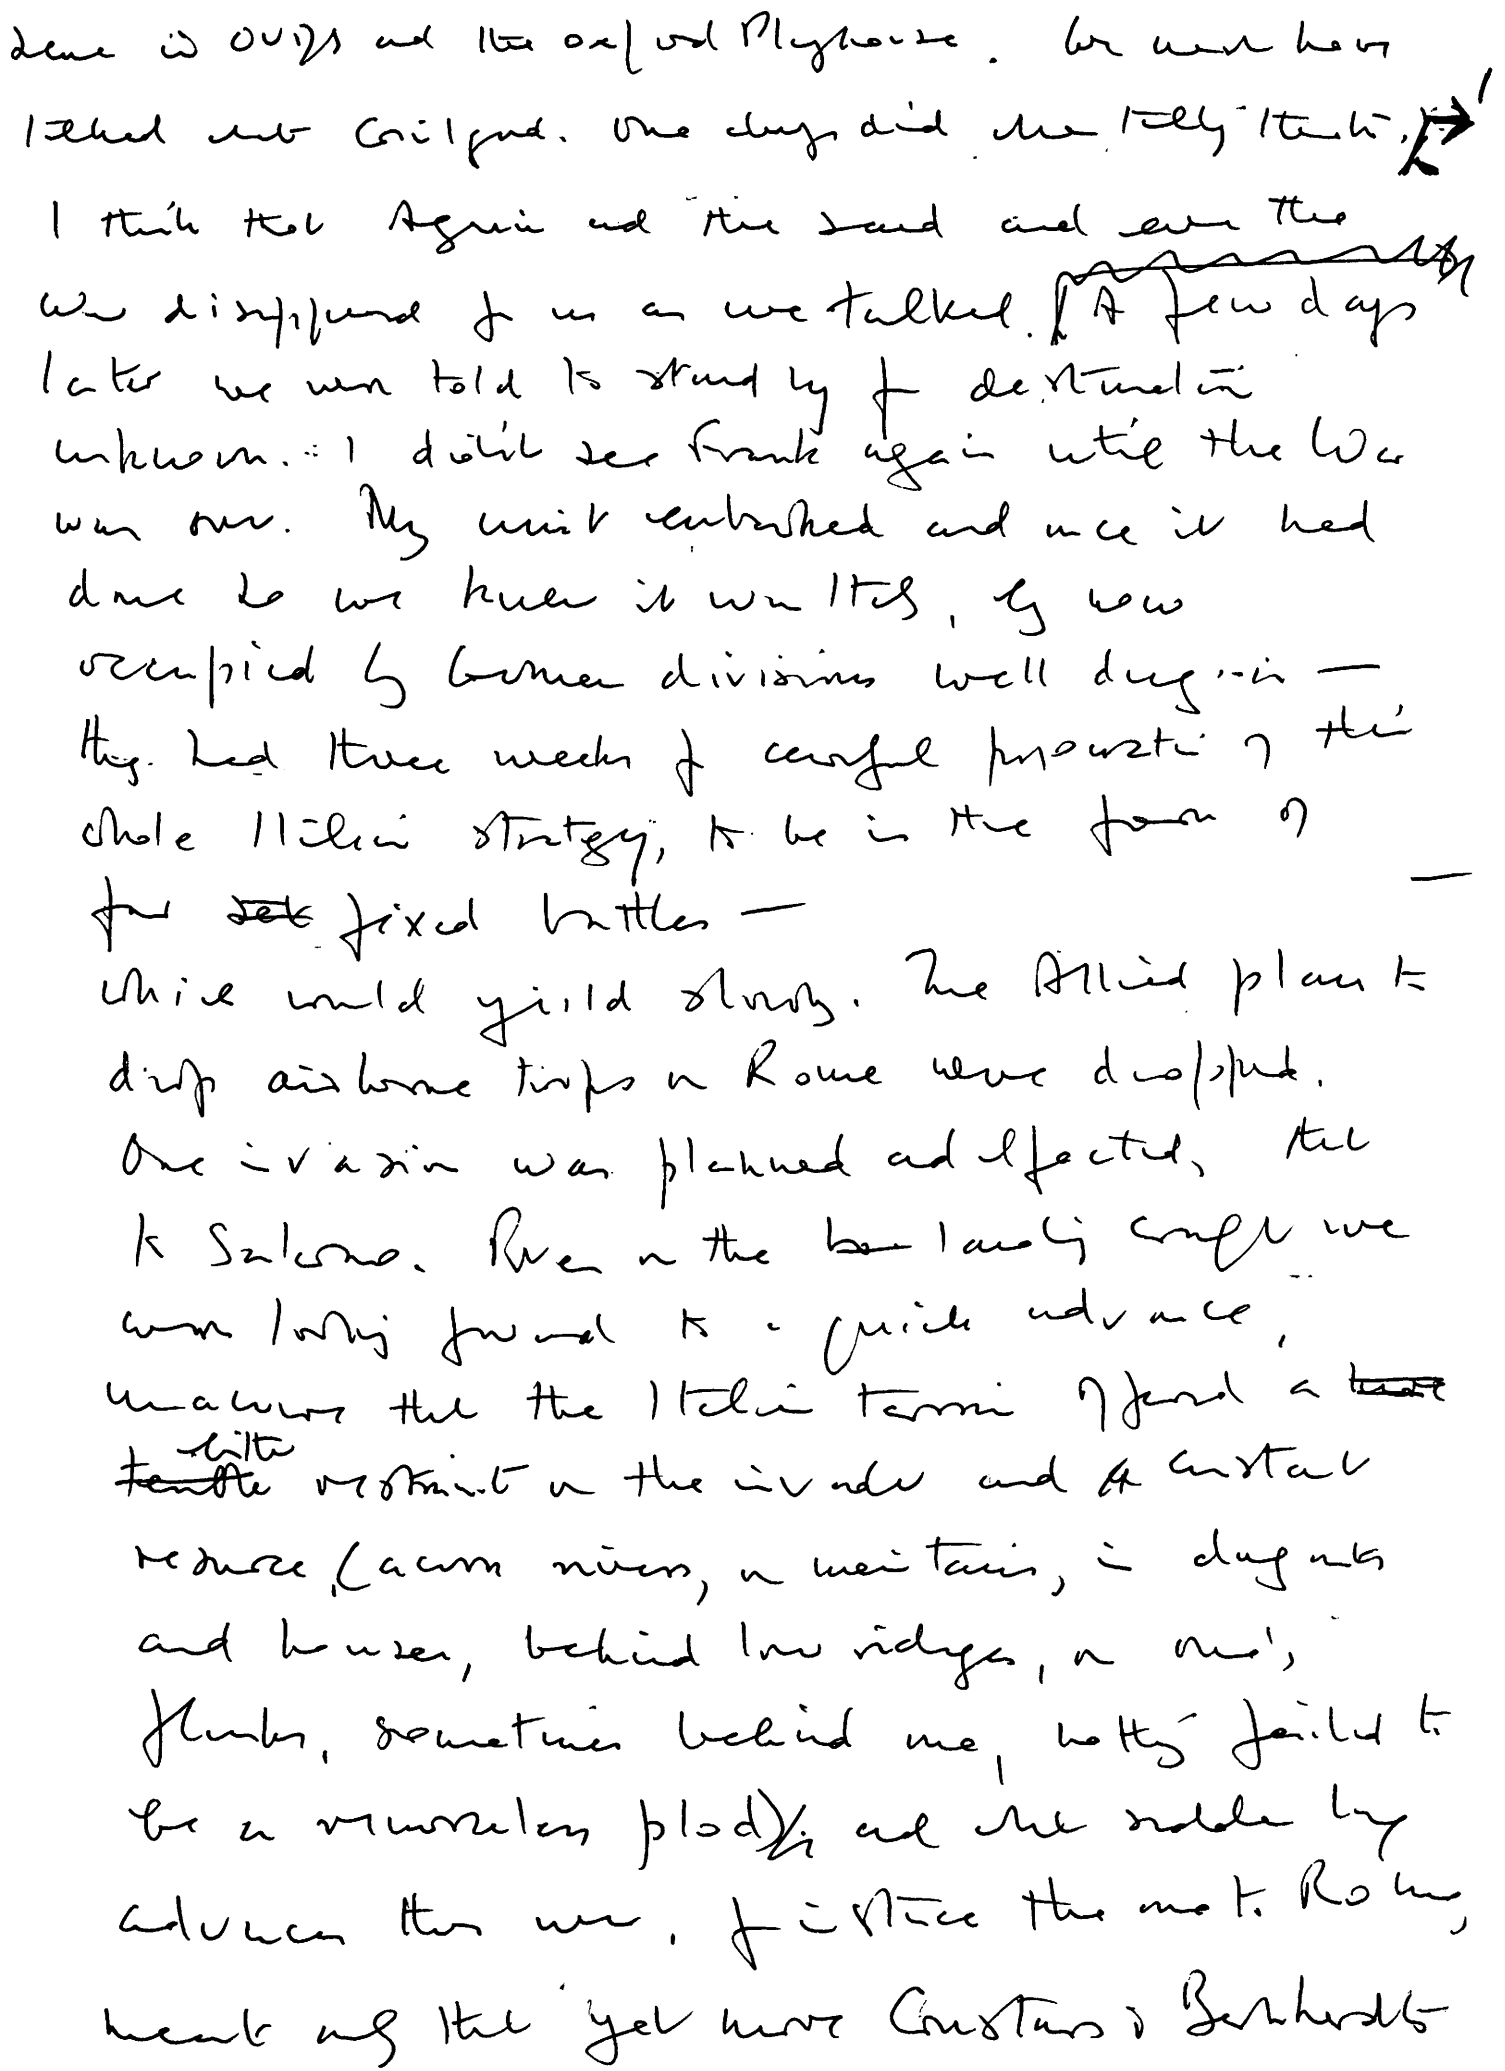 scene in OUDS and the Oxford Playhouse. We must have
talked about Gielgud. One always did when talking theatre.
I think that Algeria and the sand and even the
War disappeared for us as we talked. A few days
later we were told to stand by for destination
unknown. I didn't see Frank again until the War
was over. My unit embarked and once it had
done so we knew it was Italy, by now
occupied by German divisions well dug-in —
they had three weeks of careful preparation of their
whole Italian strategy, to be in the form of
four set fixed battles —
which would yield slowly. The Allied plans to
drop airborne troops on Rome were dropped.
One invasion was planned and effected, that
to Salerno. Even on the landing craft we
were looking forward to a quick advance,
unaware that the Italian terrain offered a
bitter restraint on the invader and a constant
resource (across rivers, on mountains, in dugouts
and houses, behind low ridges, on one's
flanks, sometimes behind one, nothing failed to
be a remorseless plod) and what sudden long
advances there were, for instance the one to Rome,
meant only that yet more Constans &